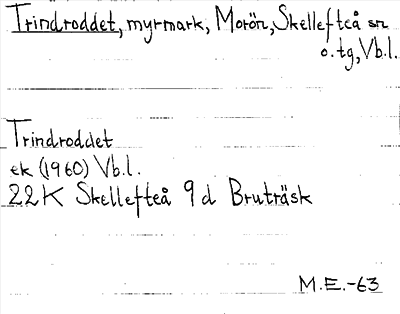 Trindroddet, myrmark, Morön, Skellefteå sn
o. tg, Vb.l.
Trindroddet
ek (1960) Vb.l.
22K Skellefteå 9d Bruträsk
M.E.-63